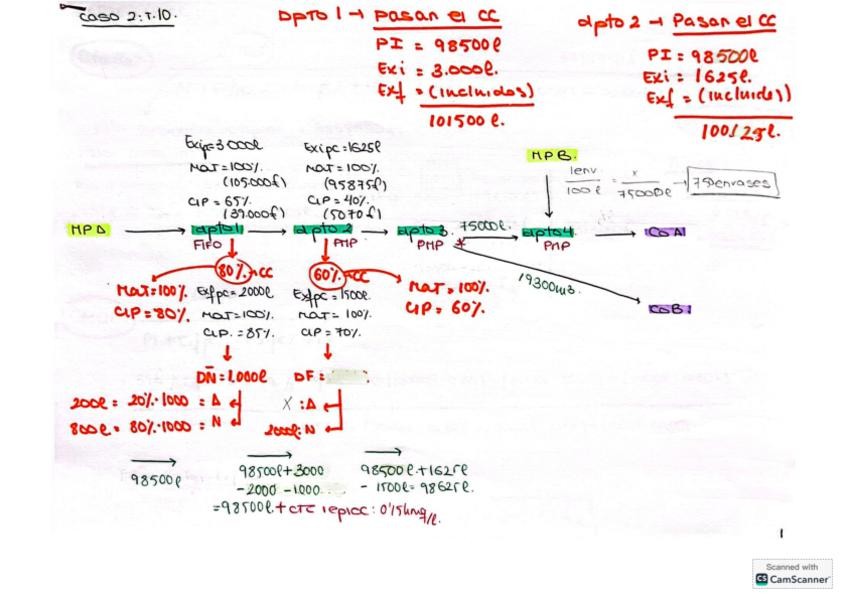 Caso 2: T.10.
Dpto 1 → Pasan el CC
PI = 98500l
Exi = 3.000l.
Exf = (incluidos)
101500 l.
dpto 2 → Pasan el CC
PI = 98500l
Exi = 1625l.
Exf = (incluidos)
100125l.
Exipc=3000l
MAT=100%
(105.000€)
CIP = 65%
(39.000€)
Exipc=1625l
MAT=100%
(95875€)
CIP = 40%
(5070€)
MP B
1env
100l
=
x
75000l
→ 750envases
MP A
dpto 1
FIFO
dpto 2
PMP
dpto 3
PMP
75000l.
dpto 4
PMP
CO A
19300um3.
CO B
80% CC
MAT=100%
CIP=80%
Exfpc=2000l
MAT=100%
CIP. = 85%
60% CC
Exfpc=1500l.
MAT= 100%
CIP = 70%
MAT=100%
CIP= 60%
DN = 1.000l
200l = 20%·1000 = A
800l = 80%·1000 = N
DF:
X : A
2000l: N
98500l
98500l+3000
-2000 -1000
=98500l + CTC repicc: 0'15hmg/l.
98500l+1625l
- 1500l= 98625l.
1
Scanned with
CS CamScanner